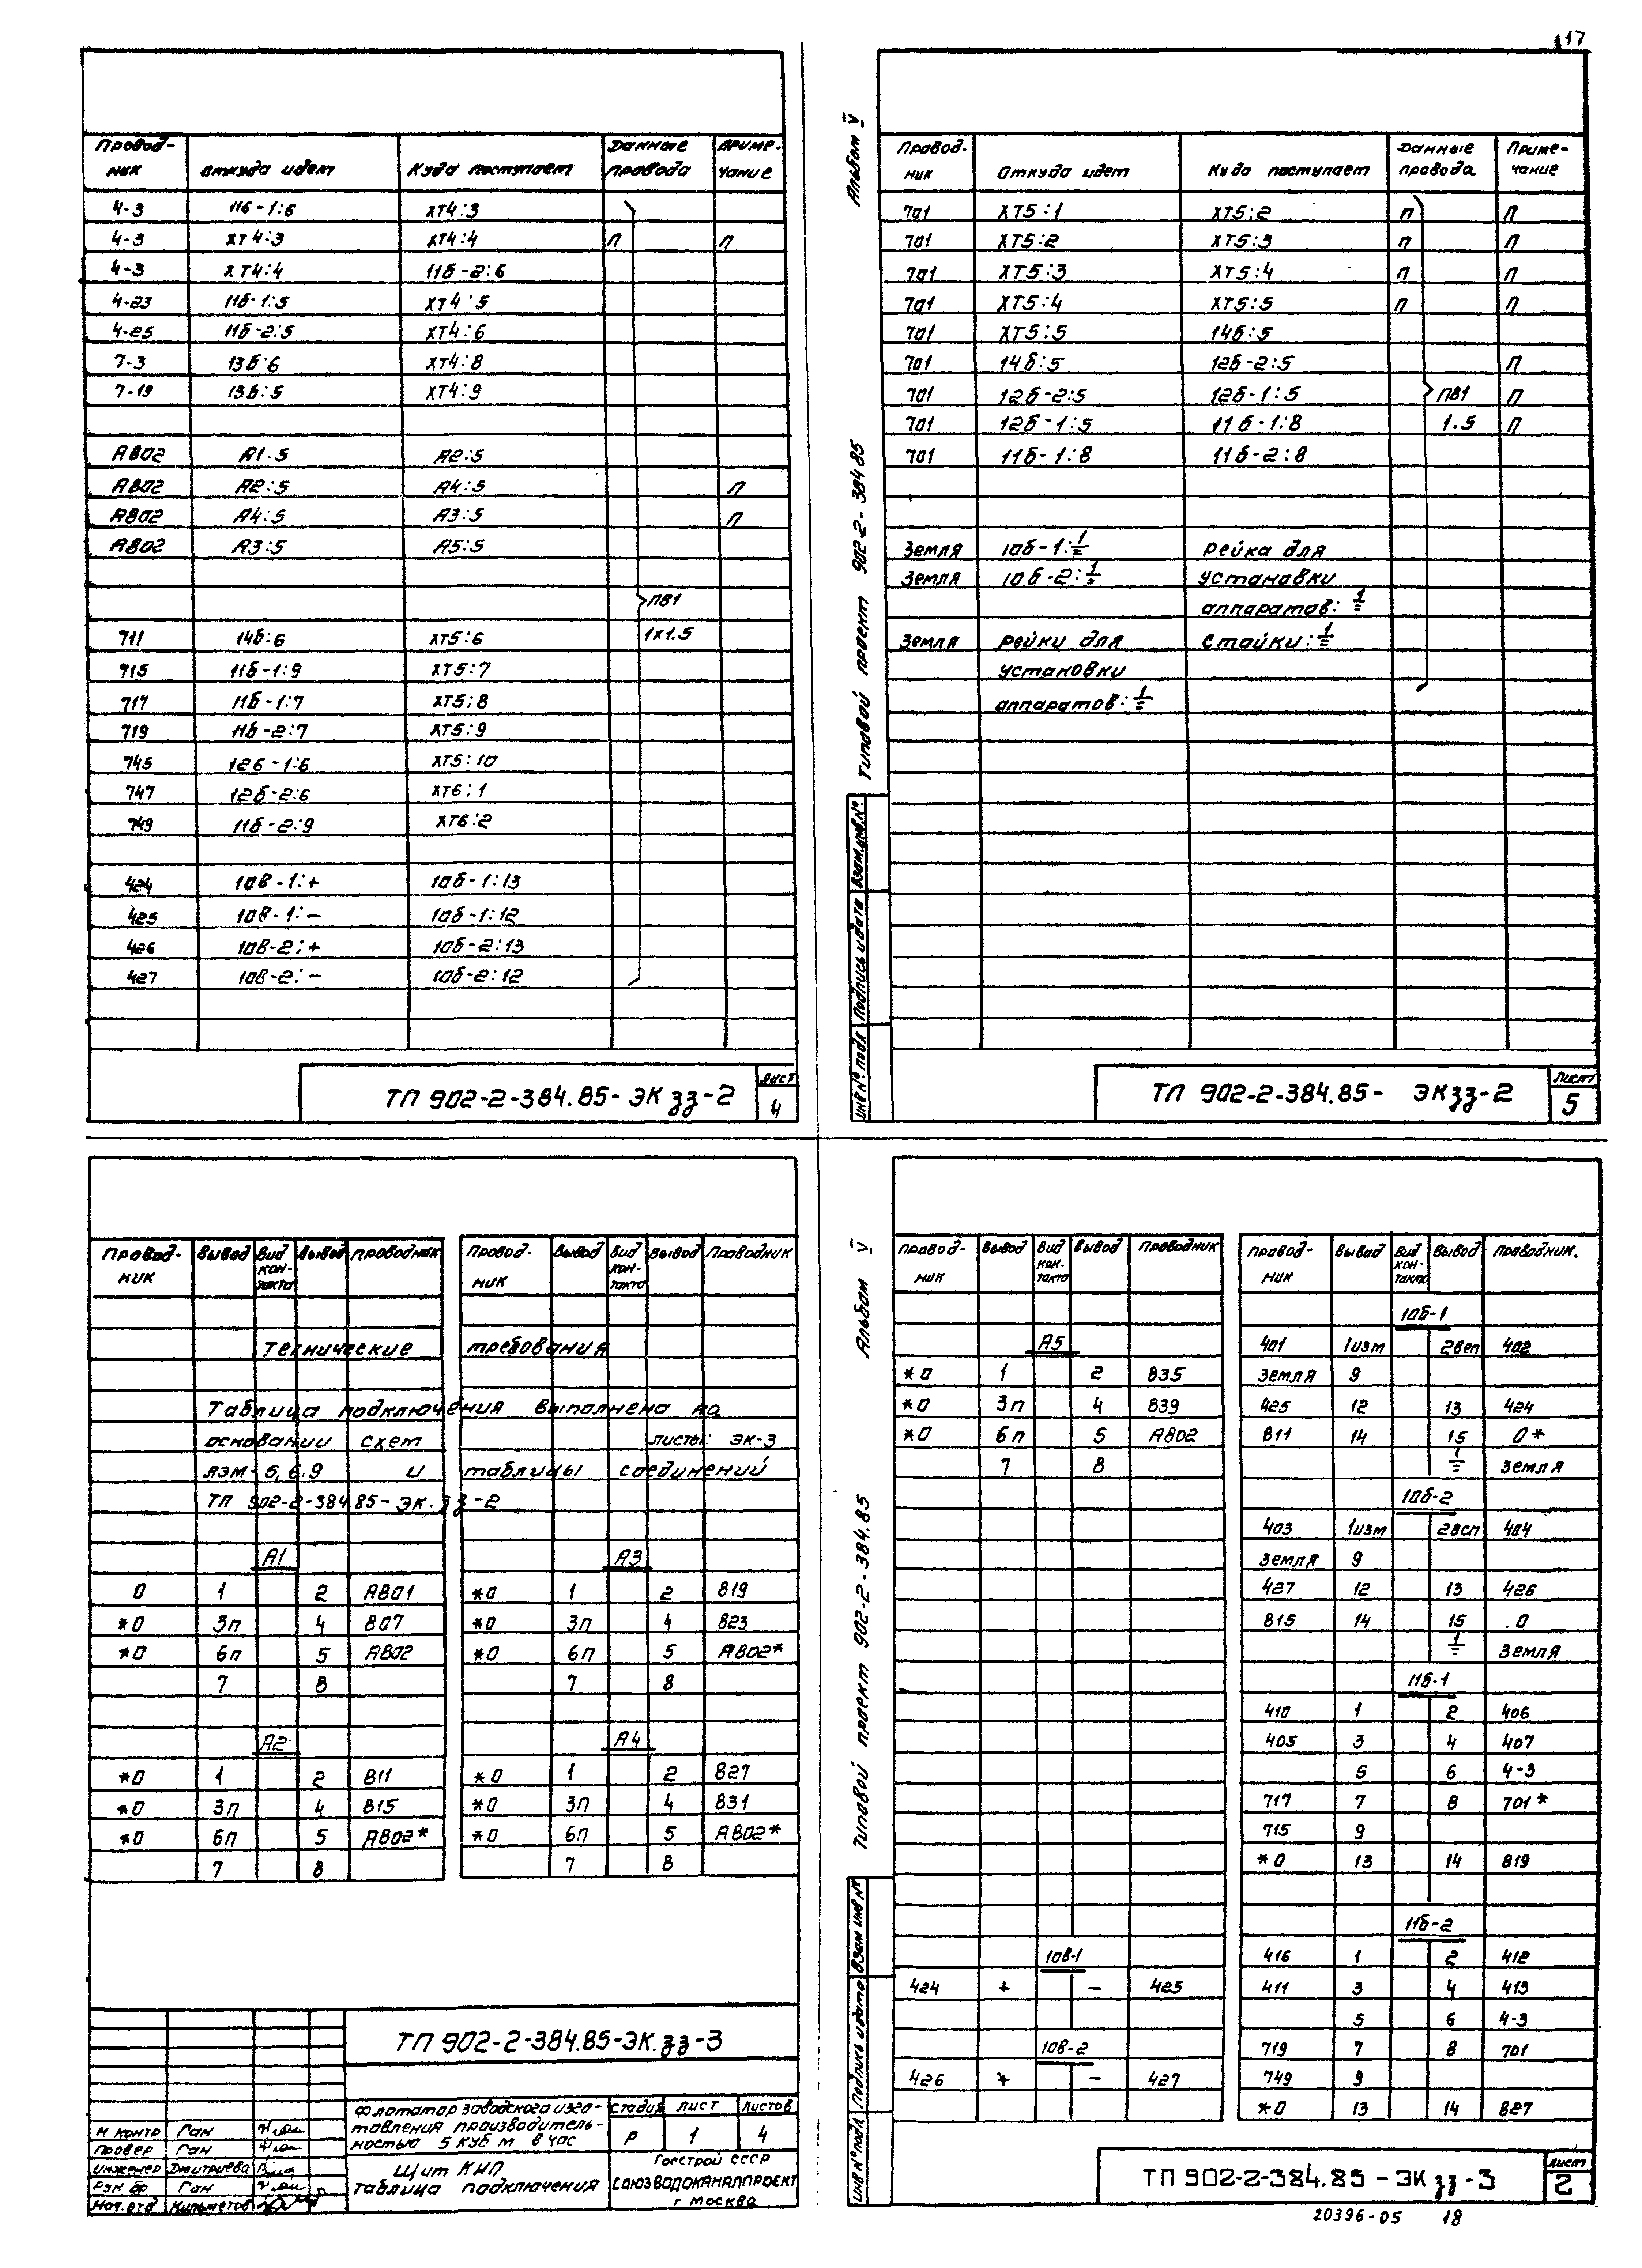 17
Провод-
ник Откуда идет Куда поступает Данные провода Приме-
чание
4-3 11б-1:6 ХТ4:3
4-3 ХТ4:3 ХТ4:4 П П
4-3 ХТ4:4 11б-2:6
4-23 11б-1:5 ХТ4:5
4-25 11б-2:5 ХТ4:6
7-3 13б:6 ХТ4:8
7-19 13б:5 ХТ4:9
А802 А1:5 А2:5
А802 А2:5 А4:5 П
А802 А4:5 А3:5 П
А802 А3:5 А5:5
ПВ1
711 14б:6 ХТ5:6 1х1.5
715 11б-1:9 ХТ5:7
717 11б-1:7 ХТ5:8
719 11б-2:7 ХТ5:9
745 12б-1:6 ХТ5:10
747 12б-2:6 ХТ6:1
749 11б-2:9 ХТ6:2
424 10в-1:+ 10б-1:13
425 10в-1:- 10б-1:12
426 10в-2:+ 10б-2:13
427 10в-2:- 10б-2:12
ТП 902-2-384.85-ЭК зз-2 Лист
4
Альбом V
Типовой проект 902-2-384.85
Инв № подл Подпись и дата Взам.инв.№
Провод-
ник Откуда идет Куда поступает Данные провода Приме-
чание
701 ХТ5:1 ХТ5:2 П П
701 ХТ5:2 ХТ5:3 П П
701 ХТ5:3 ХТ5:4 П П
701 ХТ5:4 ХТ5:5 П П
701 ХТ5:5 14б:5
701 14б:5 12б-2:5 П
701 12б-2:5 12б-1:5 ПВ1 П
701 12б-1:5 11б-1:8 1.5 П
701 11б-1:8 11б-2:8
Земля 10б-1:⏚ Рейка для
Земля 10б-2:⏚ установки
аппаратов:⏚
Земля Рейки для Стойки:⏚
установки
аппаратов:⏚
ТП 902-2-384.85- ЭК зз-2 Лист
5
Провод-
ник Вывод Вид кон-
такта Вывод Проводник Провод-
ник Вывод Вид кон-
такта Вывод Проводник
Технические требования
Таблица подключения выполнена на
основании схем листы: ЭК-3
ЯЭМ-5,6.9 и таблицы соединений
ТП 902-2-384.85-ЭК.зз-2
А1 А3
0 1 2 А801 *0 1 2 819
*0 3п 4 807 *0 3п 4 823
*0 6п 5 А802 *0 6п 5 А802*
7 8 7 8
А2 А4
*0 1 2 811 *0 1 2 827
*0 3п 4 815 *0 3п 4 831
*0 6п 5 А802* *0 6п 5 А802*
7 8 7 8
ТП 902-2-384.85-ЭК.зз-3
Флотатор заводского изго-
товления производитель-
ностью 5 куб м в час
Стадия Лист Листов
Р 1 4
Щит КИП
Таблица подключения
Госстрой СССР
СОЮЗВОДОКАНАЛПРОЕКТ
г Москва
Н контр Ган
Провер Ган
Инженер Дмитриева
Рук бр Ган
Нач.отд
Альбом V
Типовой проект 902-2-384.85
Инв № подл Подпись и дата Взам инв №
Провод-
ник Вывод Вид кон-
такта Вывод Проводник
А5
*0 1 2 835
*0 3п 4 839
*0 6п 5 А802
7 8
10в-1
424 + - 425
10в-2
426 + - 427
Провод-
ник Вывод Вид кон-
такта Вывод Проводник.
10б-1
401 1изм 2всп 402
Земля 9
425 12 13 424
811 14 15 0*
⏚ Земля
10б-2
403 1изм 2всп 404
Земля 9
427 12 13 426
815 14 15 .0
⏚ Земля
11б-1
410 1 2 406
405 3 4 407
5 6 4-3
717 7 8 701*
715 9
*0 13 14 819
11б-2
416 1 2 412
411 3 4 413
5 6 4-3
719 7 8 701
749 9
*0 13 14 827
ТП 902-2-384.85-ЭК зз-3 Лист
2
20396-05 18